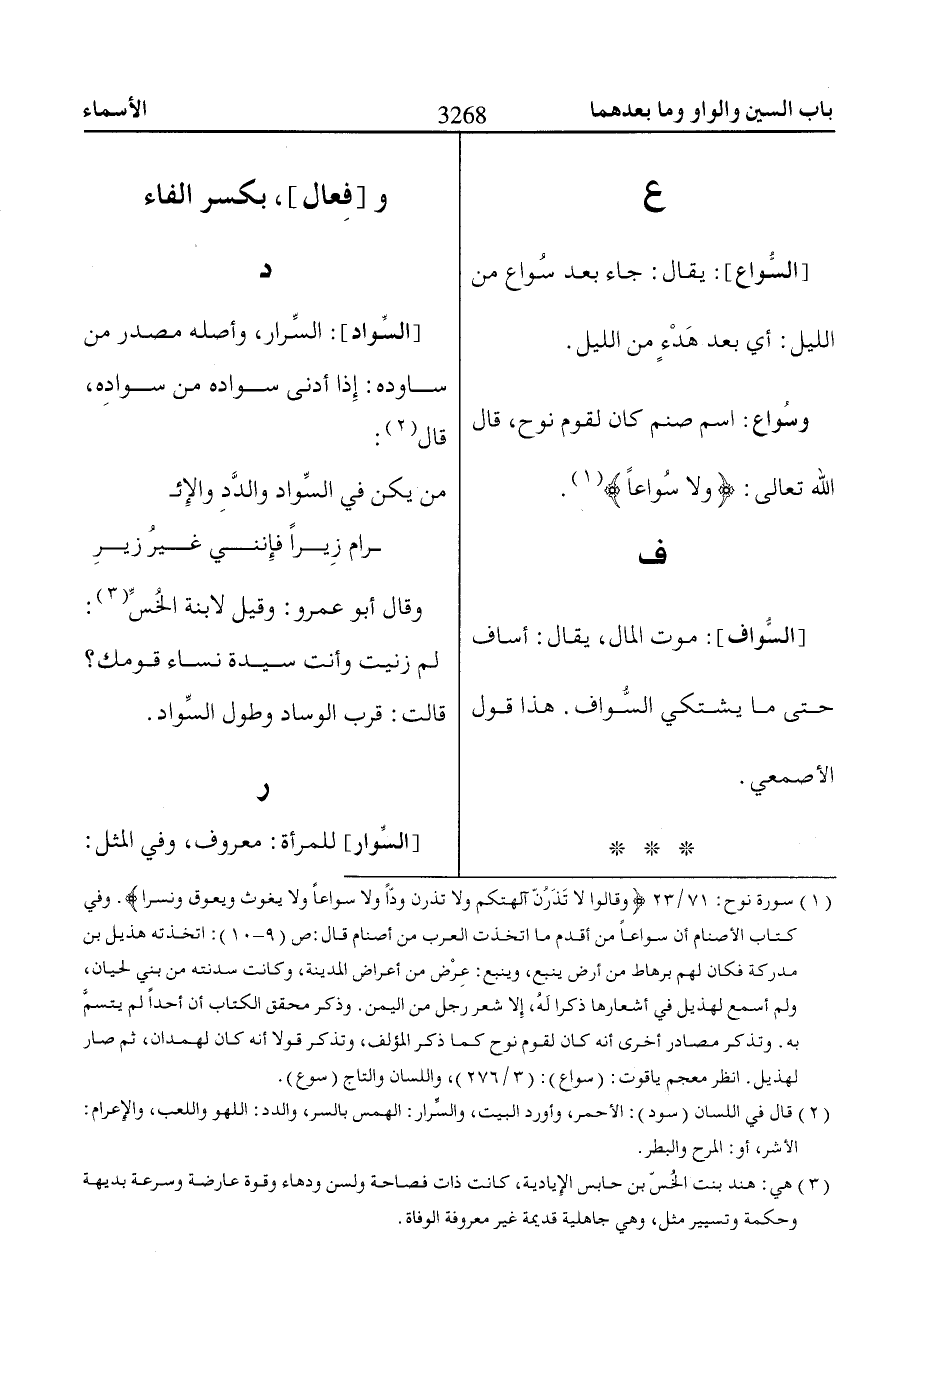 باب السين والواو وما بعدهما 3268 الأسماء
ع
[السُّواع]: يقال: جاء بعد سُواع من
الليل: أي بعد هَدْءٍ من الليل.
وسُواع: اسم صنم كان لقوم نوح، قال
الله تعالى: ﴿ولا سُواعاً﴾(١).
ف
[السُّواف]: موت المال، يقال: أساف
حتى ما يشتكي السُّواف. هذا قول
الأصمعي.
* * *
و [فِعال]، بكسر الفاء
د
[السِّواد]: السِّرار، وأصله مصدر من
ساوده: إذا أدنى سواده من سِواده،
قال(٢):
من يكن في السِّواد والدَّدِ والإِعـ
ـرام زِيراً فإِنني غيرُ زِيرِ
وقال أبو عمرو: وقيل لابنة الخُسِّ(٣):
لم زنيت وأنت سيدة نساء قومك؟
قالت: قرب الوساد وطول السِّواد.
ر
[السِّوار] للمرأة: معروف، وفي المثل:
(١) سورة نوح: ٢٣/٧١ ﴿وقالوا لا تَذَرُنّ آلهتكم ولا تذرن ودّاً ولا سواعاً ولا يغوث ويعوق ونسرا﴾. وفي
كتاب الأصنام أن سواعاً من أقدم ما اتخذت العرب من أصنام قال: ص (٩-١٠): اتخذته هذيل بن
مدركة فكان لهم برهاط من أرض ينبع، وينبع: عِرْض من أعراض المدينة، وكانت سدنته من بني لحيان،
ولم أسمع لهذيل في أشعارها ذكرا لَهُ، إلا شعر رجل من اليمن. وذكر محقق الكتاب أن أحداً لم يتسمَّ
به. وتذكر مصادر أخرى أنه كان لقوم نوح كما ذكر المؤلف، وتذكر قولا أنه كان لهمدان، ثم صار
لهذيل. انظر معجم ياقوت: (سواع): (٢٧٦/٣)، واللسان والتاج (سوع).
(٢) قال في اللسان (سود): الأحمر، وأورد البيت، والسِّرار: الهمس بالسر، والدد: اللهو واللعب، والإعرام:
الأشر، أو: المرح والبطر.
(٣) هي: هند بنت الخُسّ بن حابس الإيادية، كانت ذات فصاحة ولسن ودهاء وقوة عارضة وسرعة بديهة
وحكمة وتسيير مثل، وهي جاهلية قديمة غير معروفة الوفاة.